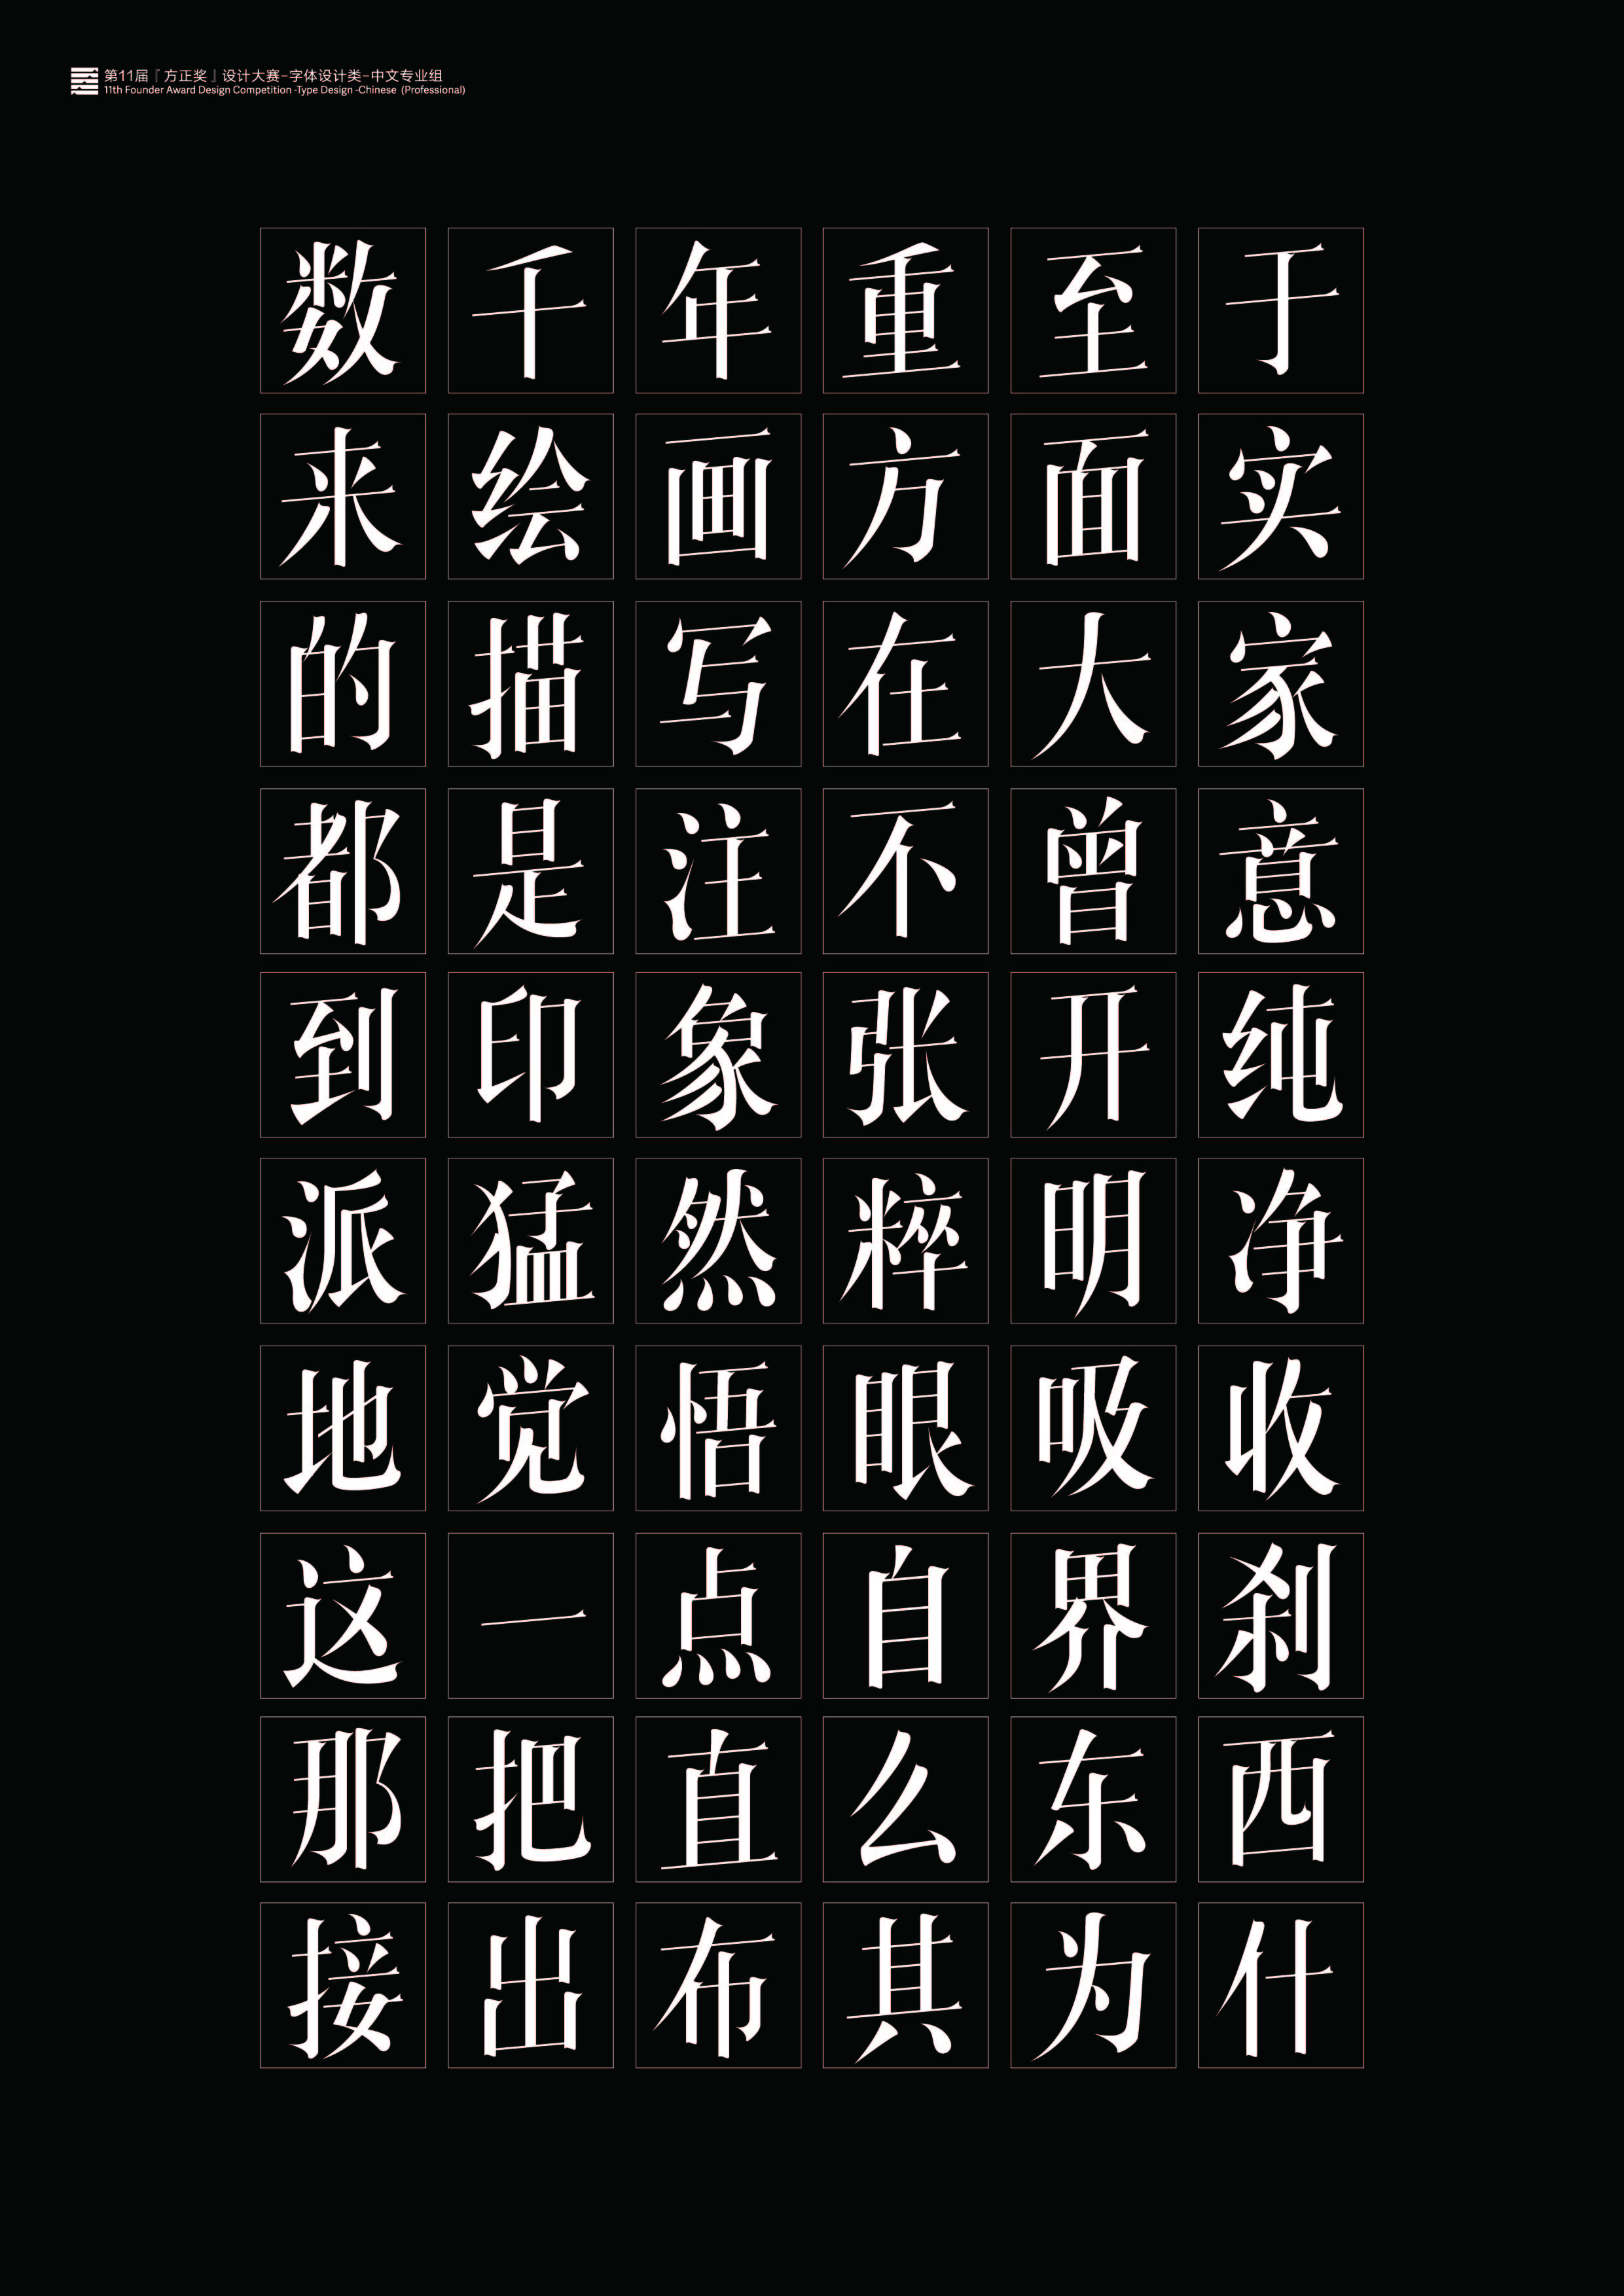 第11届『方正奖』设计大赛-字体设计类-中文专业组
11th Founder Award Design Competition -Type Design -Chinese (Professional)
数千年重至于
来绘画方面实
的描写在大家
都是注不曾意
到印象张开纯
派猛然粹明净
地觉悟眼吸收
这一点自界刹
那把直么东西
接出布其为什